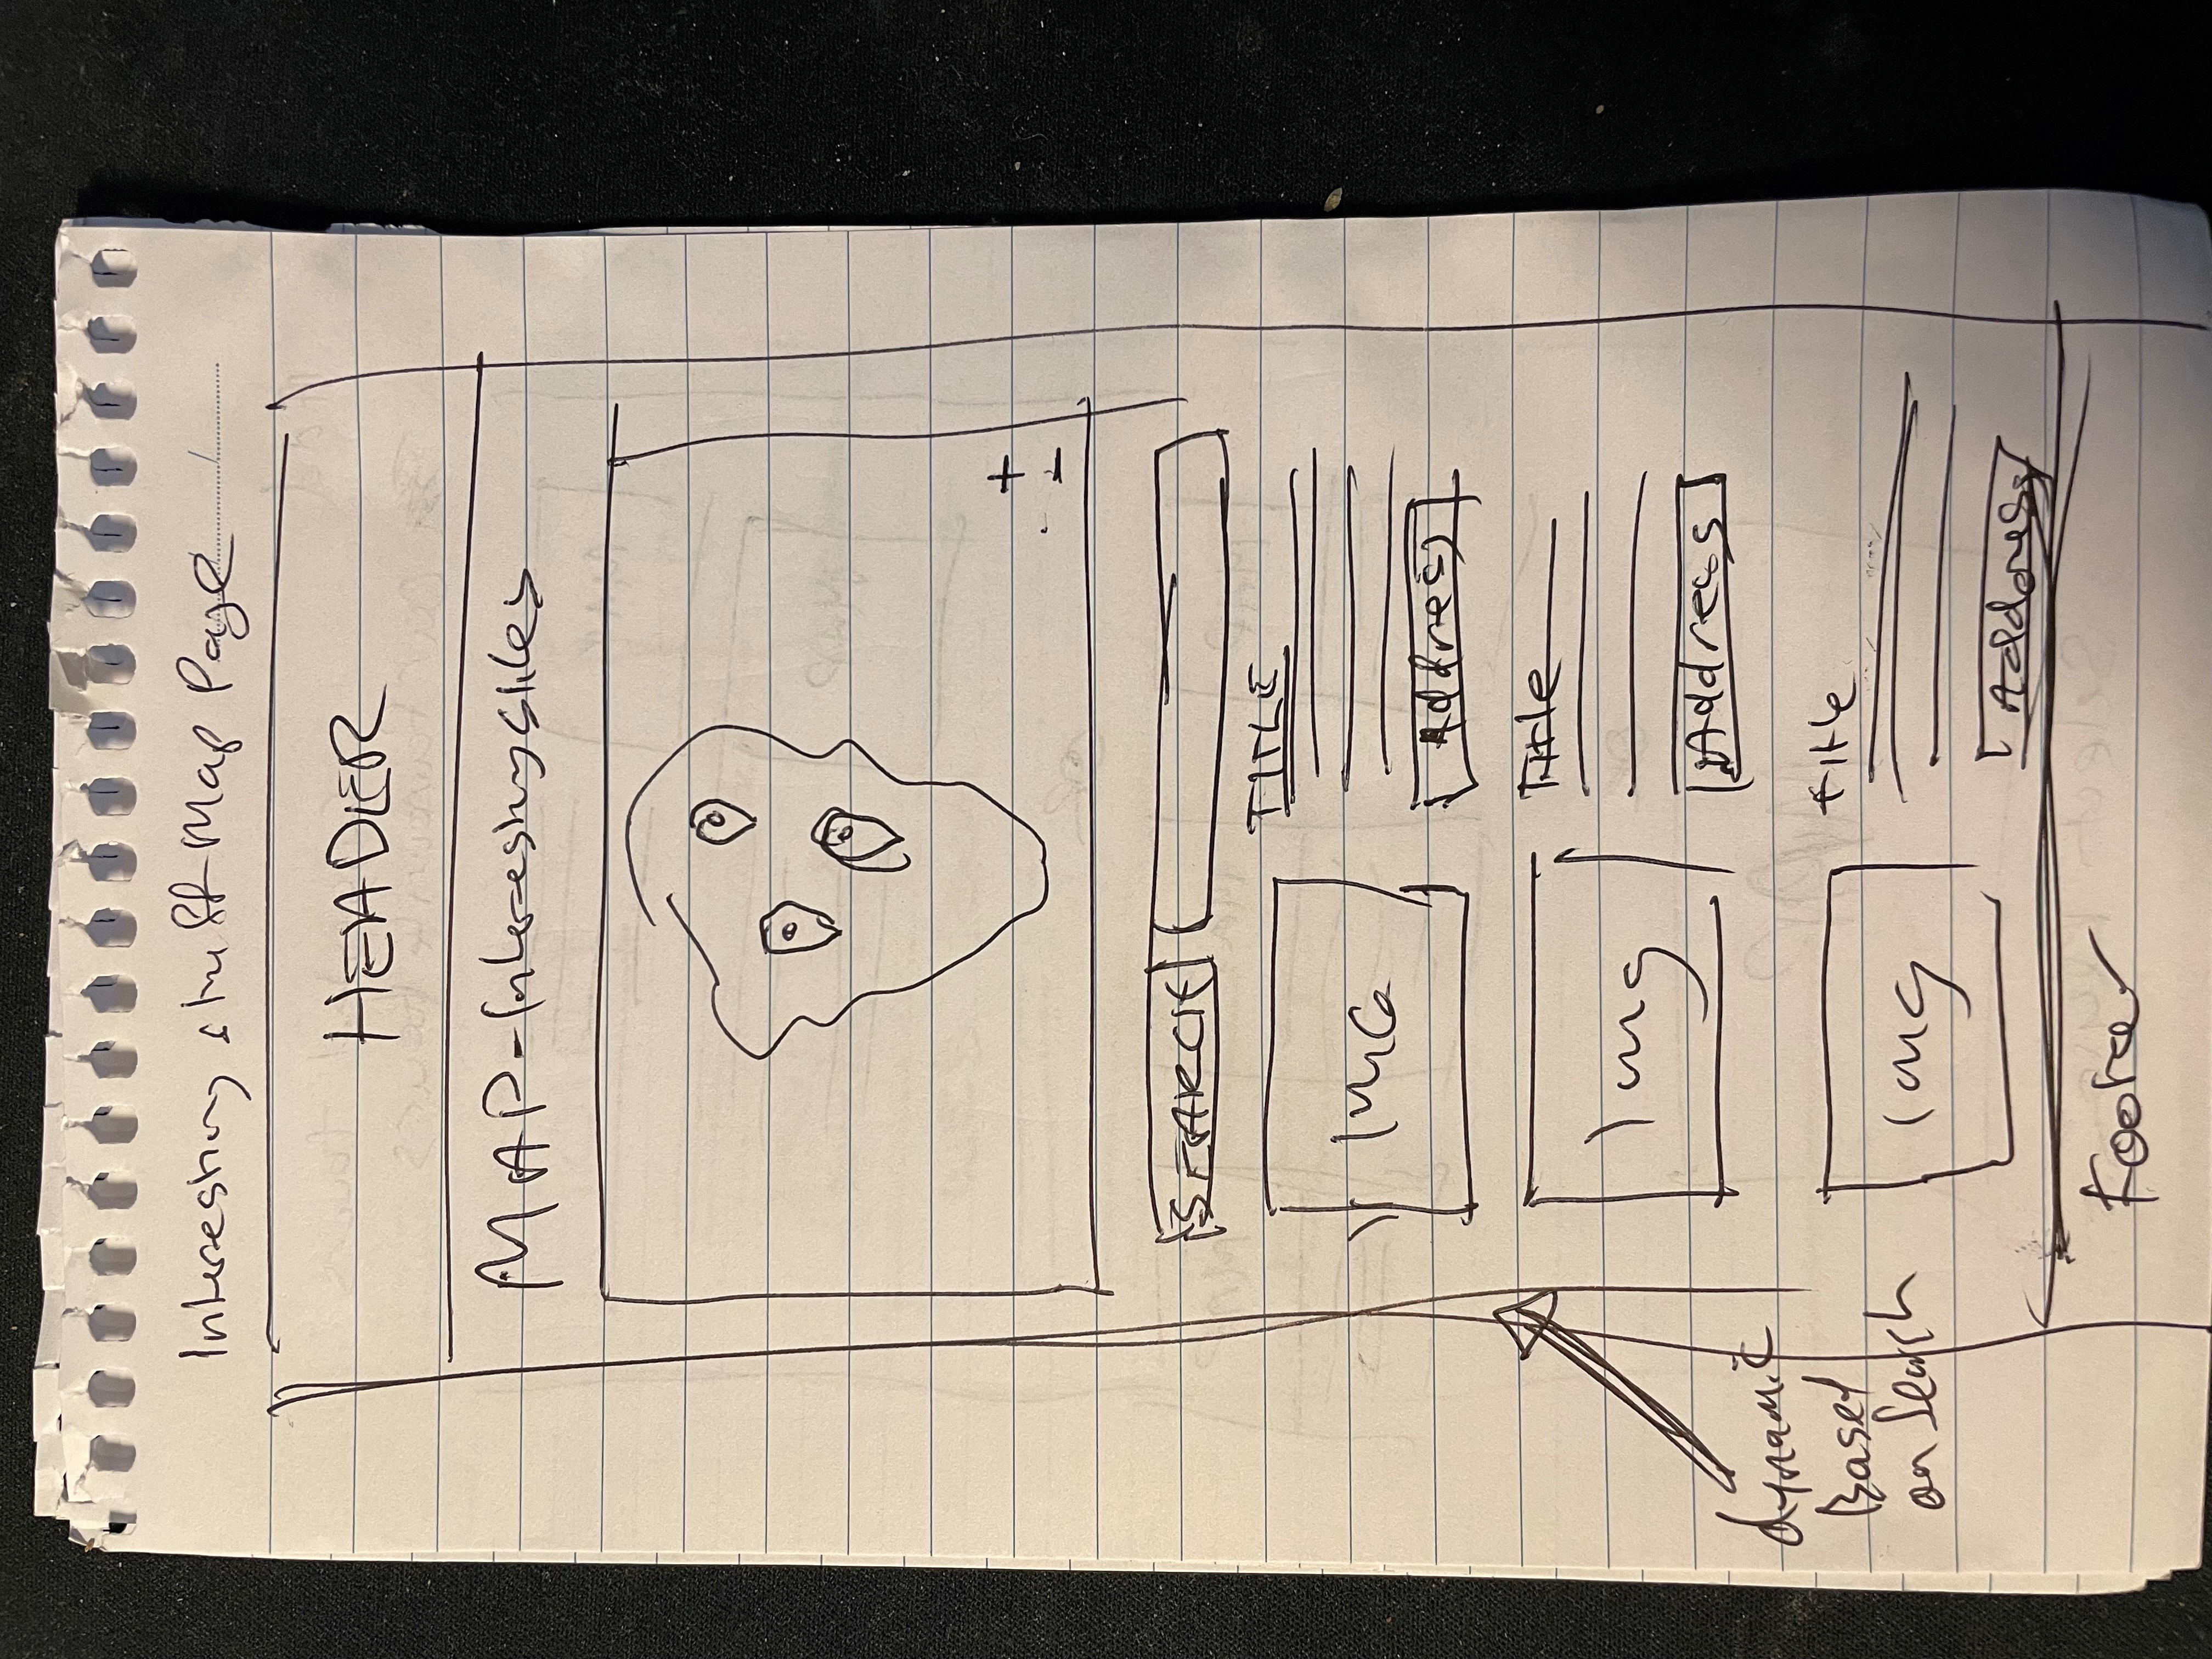 Interesting stuff-Map Page
HEADER
MAP-Interesting Sites
+
-
SEARCH
IMG
TITLE
Address
Img
Title
Address
Img
title
Address
dynamic
Based
on Search
Footer